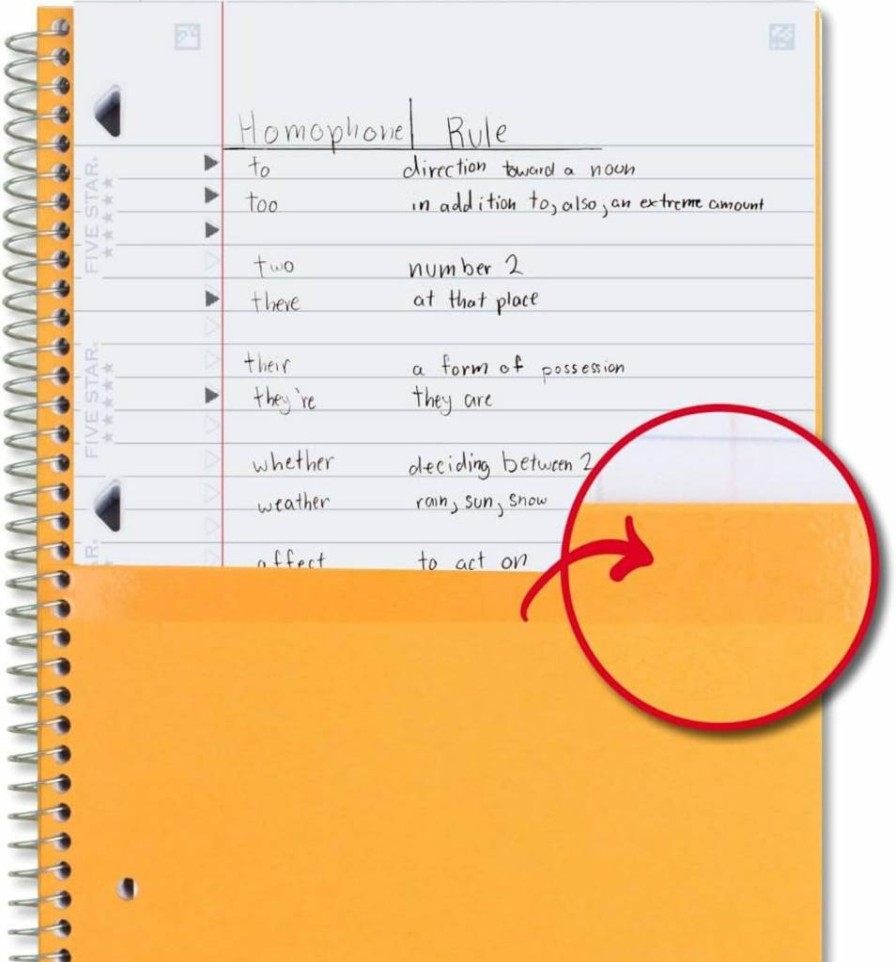 Homophone Rule
to direction toward a noun
too in addition to, also, an extreme amount
two number 2
there at that place
their a form of possession
they're they are
whether deciding between 2
weather rain, sun, snow
affect to act on
FIVE STAR.
FIVE STAR.
R.